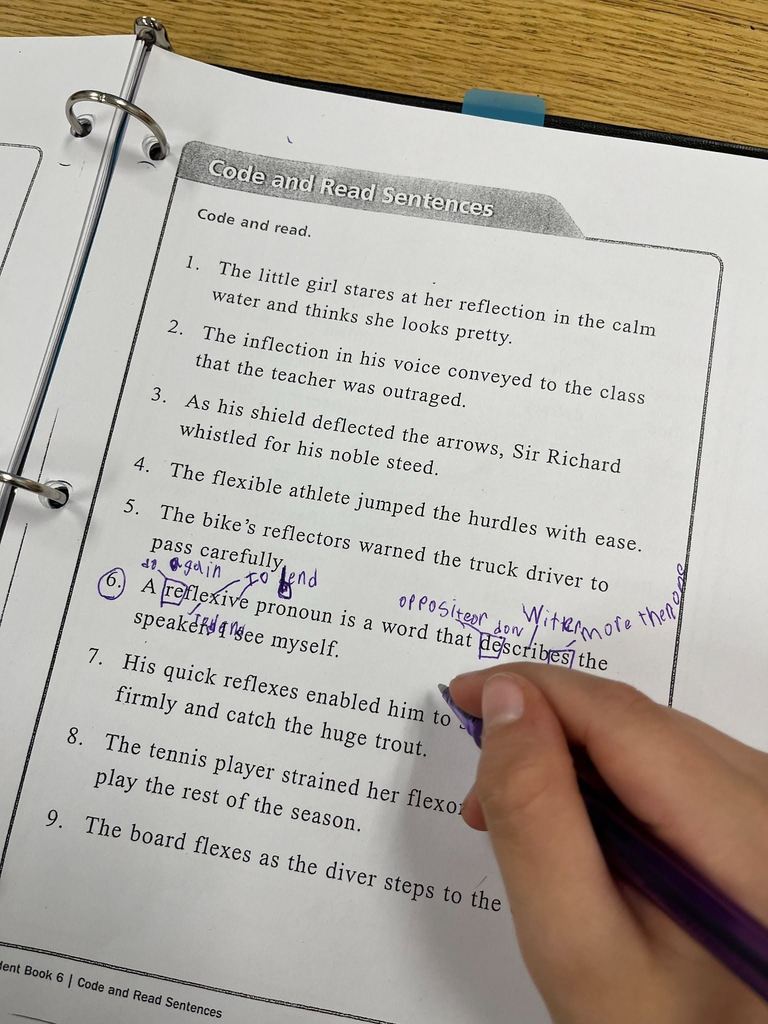 Code and Read Sentences
Code and read.
1. The little girl stares at her reflection in the calm
water and thinks she looks pretty.
2. The inflection in his voice conveyed to the class
that the teacher was outraged.
3. As his shield deflected the arrows, Sir Richard
whistled for his noble steed.
4. The flexible athlete jumped the hurdles with ease.
5. The bike's reflectors warned the truck driver to
pass carefully.
again to bend
opposite or down more then one
6. A reflexive pronoun is a word that describes the
speaker: I see myself.
7. His quick reflexes enabled him to
firmly and catch the huge trout.
8. The tennis player strained her flexor
play the rest of the season.
9. The board flexes as the diver steps to the
dent Book 6 | Code and Read Sentences